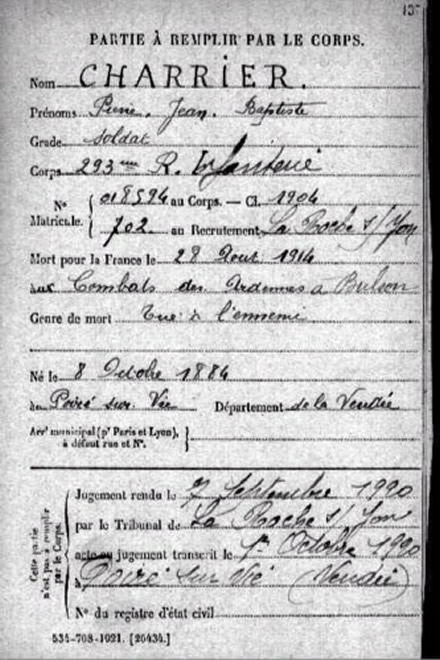 137
PARTIE À REMPLIR PAR LE CORPS.
Nom CHARRIER.
Prénoms Pierre. Jean. Baptiste
Grade soldat
Corps 293ème R. Infanterie
N° 018594 au Corps. — Cl. 1904
Matricule. 702. au Recrutement La Roche s/Yon
Mort pour la France le 28 Août 1914
aux Combats des Ardennes à Bulson
Genre de mort Tué à l'ennemi
Né le 8 Octobre 1884
au Poiré sur Vie Département de la Vendée
Arrt municipal (pr Paris et Lyon),
à défaut rue et N°.
Cette partie
n'est pas à remplir
par le Corps.
Jugement rendu le 7 Septembre 1920
par le Tribunal de La Roche s/Yon
acte ou jugement transcrit le 1er Octobre 1920
à Poiré sur Vie (Vendée)
N° du registre d'état civil
534-708-1921. [26434.]